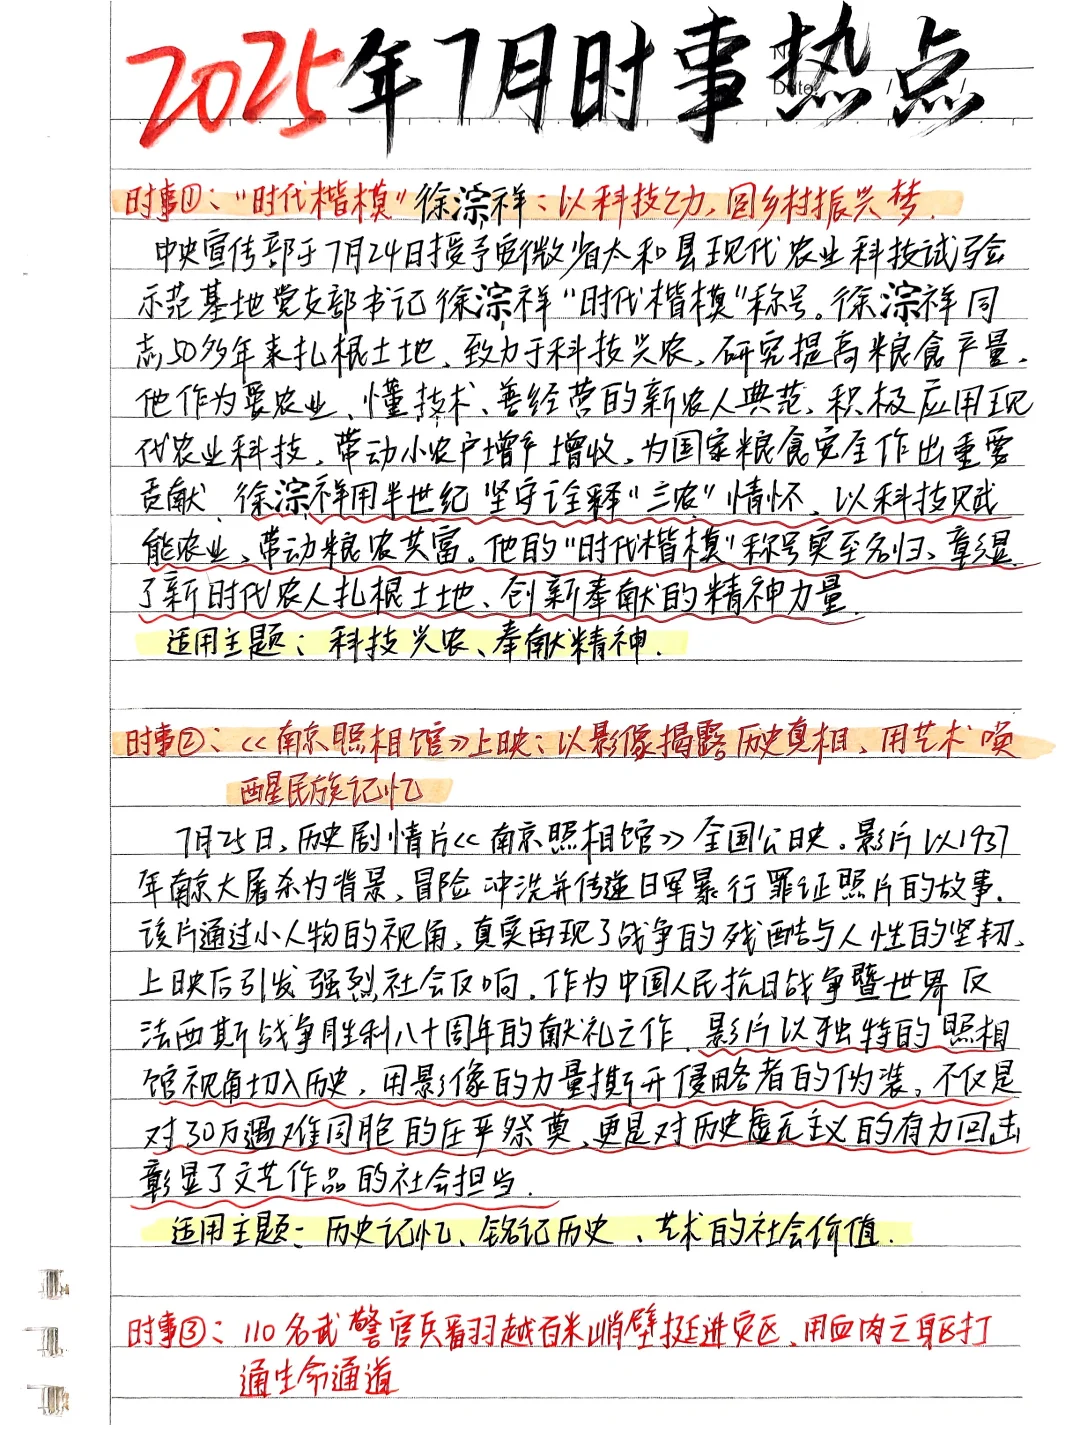 2025年7月时事热点
No.
Date / /
时事①："时代楷模"徐淙祥：以科技之力，圆乡村振兴梦.
中央宣传部于7月24日授予安徽省太和县现代农业科技试验
示范基地党支部书记徐淙祥"时代楷模"称号。徐淙祥同
志50多年来扎根土地、致力于科技兴农，研究提高粮食产量，
他作为爱农业、懂技术、善经营的新农人典范，积极应用现
代农业科技，带动小农户增产增收，为国家粮食安全作出重要
贡献.徐淙祥用半世纪坚守诠释"三农"情怀，以科技赋
能农业、带动粮农共富。他的"时代楷模"称号实至名归，彰显
了新时代农人扎根土地、创新奉献的精神力量.
适用主题：科技兴农、奉献精神.
时事②：《南京照相馆》上映：以影像揭露历史真相，用艺术唤
醒民族记忆
7月25日，历史剧情片《南京照相馆》全国公映。影片以1937
年南京大屠杀为背景，冒险冲洗并传递日军暴行罪证照片的故事.
该片通过小人物的视角，真实再现了战争的残酷与人性的坚韧，
上映后引发强烈社会反响，作为中国人民抗日战争暨世界反
法西斯战争胜利八十周年的献礼之作.影片以独特的照相
馆视角切入历史，用影像的力量撕开侵略者的伪装，不仅是
对30万遇难同胞的庄严祭奠，更是对历史虚无主义的有力回击
彰显了文艺作品的社会担当.
适用主题：历史记忆、铭记历史、艺术的社会价值.
时事③：110名武警官兵翻越百米峭壁挺进灾区，用血肉之躯打
通生命通道